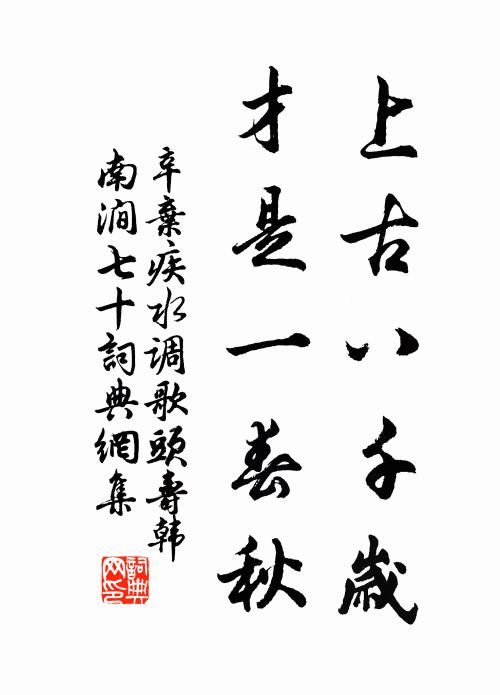 上古八千歲
才是一春秋
辛棄疾水调歌頭壽韩
南澗七十詞典網集
詞典
网印